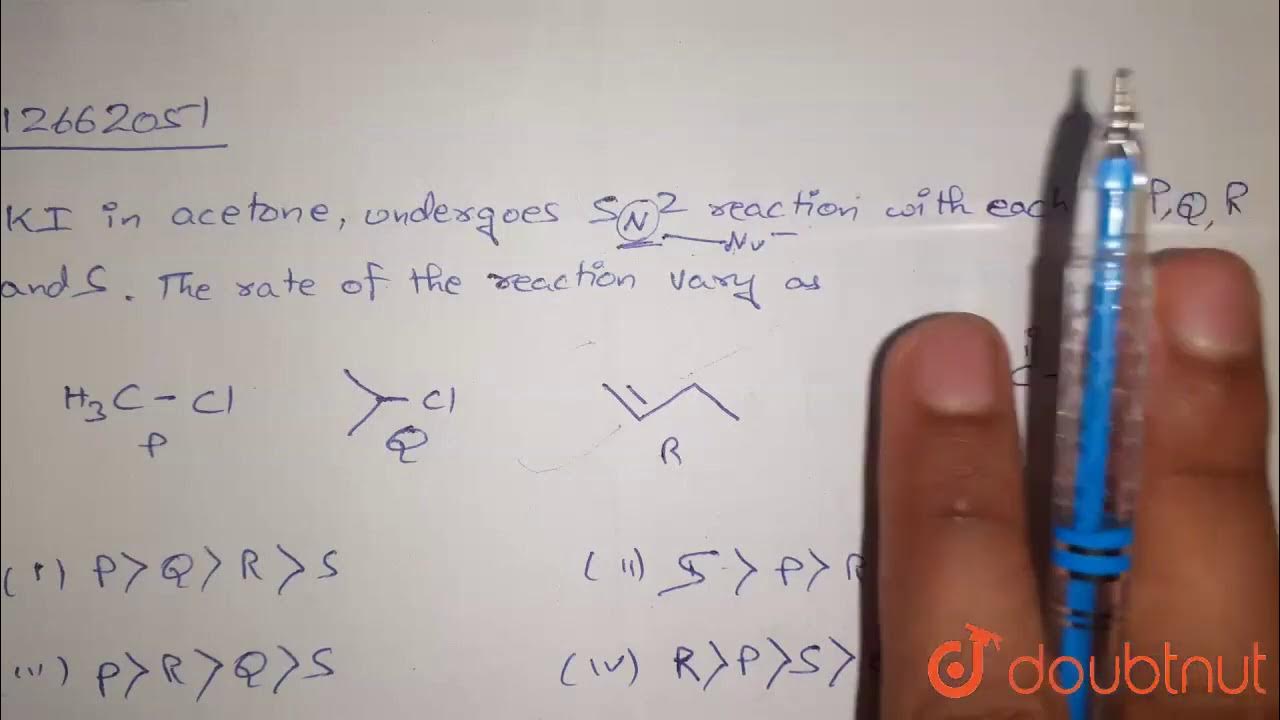 12662051
KI in acetone, undergoes SN2 reaction with each P, Q, R
Nu-
and S. The rate of the reaction vary as
H3C-Cl
Cl
P
Q
R
(i) P>Q>R>S
(ii) S>P>R
(iii) P>R>Q>S
(iv) R>P>S>
doubtnut